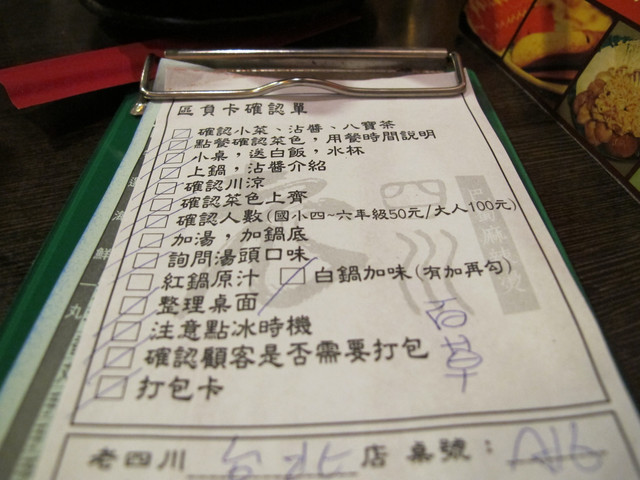 區負卡確認單
確認小菜、沾醬、八寶茶
點餐確認菜色，用餐時間說明
小桌，送白飯，水杯
上鍋，沾醬介紹
確認川涼
確認菜色上齊
確認人數(國小四~六年級50元/大人100元)
加湯，加鍋底
詢問湯頭口味
紅鍋原汁 白鍋加味(有加再勾)
整理桌面
注意點冰時機
確認顧客是否需要打包
打包卡
百草
老四川 台北 店 桌號： A16